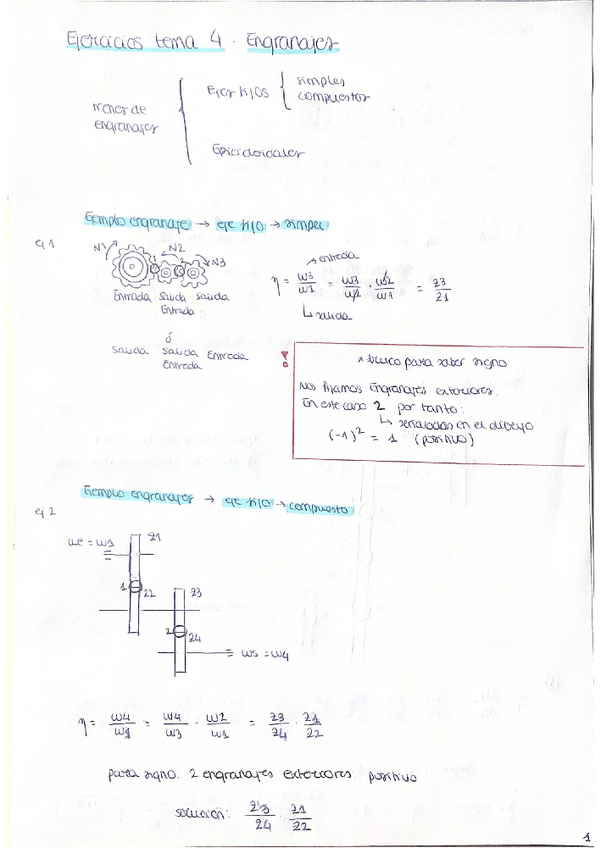 Ejercicios tema 4. Engranajes
trenes de engranajes
Ejes fijos
simples
compuestos
Epicicloidales
Ejemplo engranaje → eje fijo → simple
ej 1
N1 N2 N3
Entrada Salida Salida
Entrada
ó
Salida Salida Entrada
Entrada
entrada
η = ω3/ω1 = ω3/ω2 · ω2/ω1 = z3/z1
salida
* truco para saber signo
Nos fijamos Engranajes exteriores.
En este caso 2 por tanto:
señalados en el dibujo
(-1)² = 1 (positivo)
Ejemplo engranajes → eje fijo → compuesto
ej 2
ωe = ω1
z1
1
z2
z3
2
z4
ωs = ω4
η = ω4/ω1 = ω4/ω3 · ω2/ω1 = z3/z4 · z1/z2
para signo: 2 engranajes exteriores positivo
solución: z3/z4 · z1/z2
1